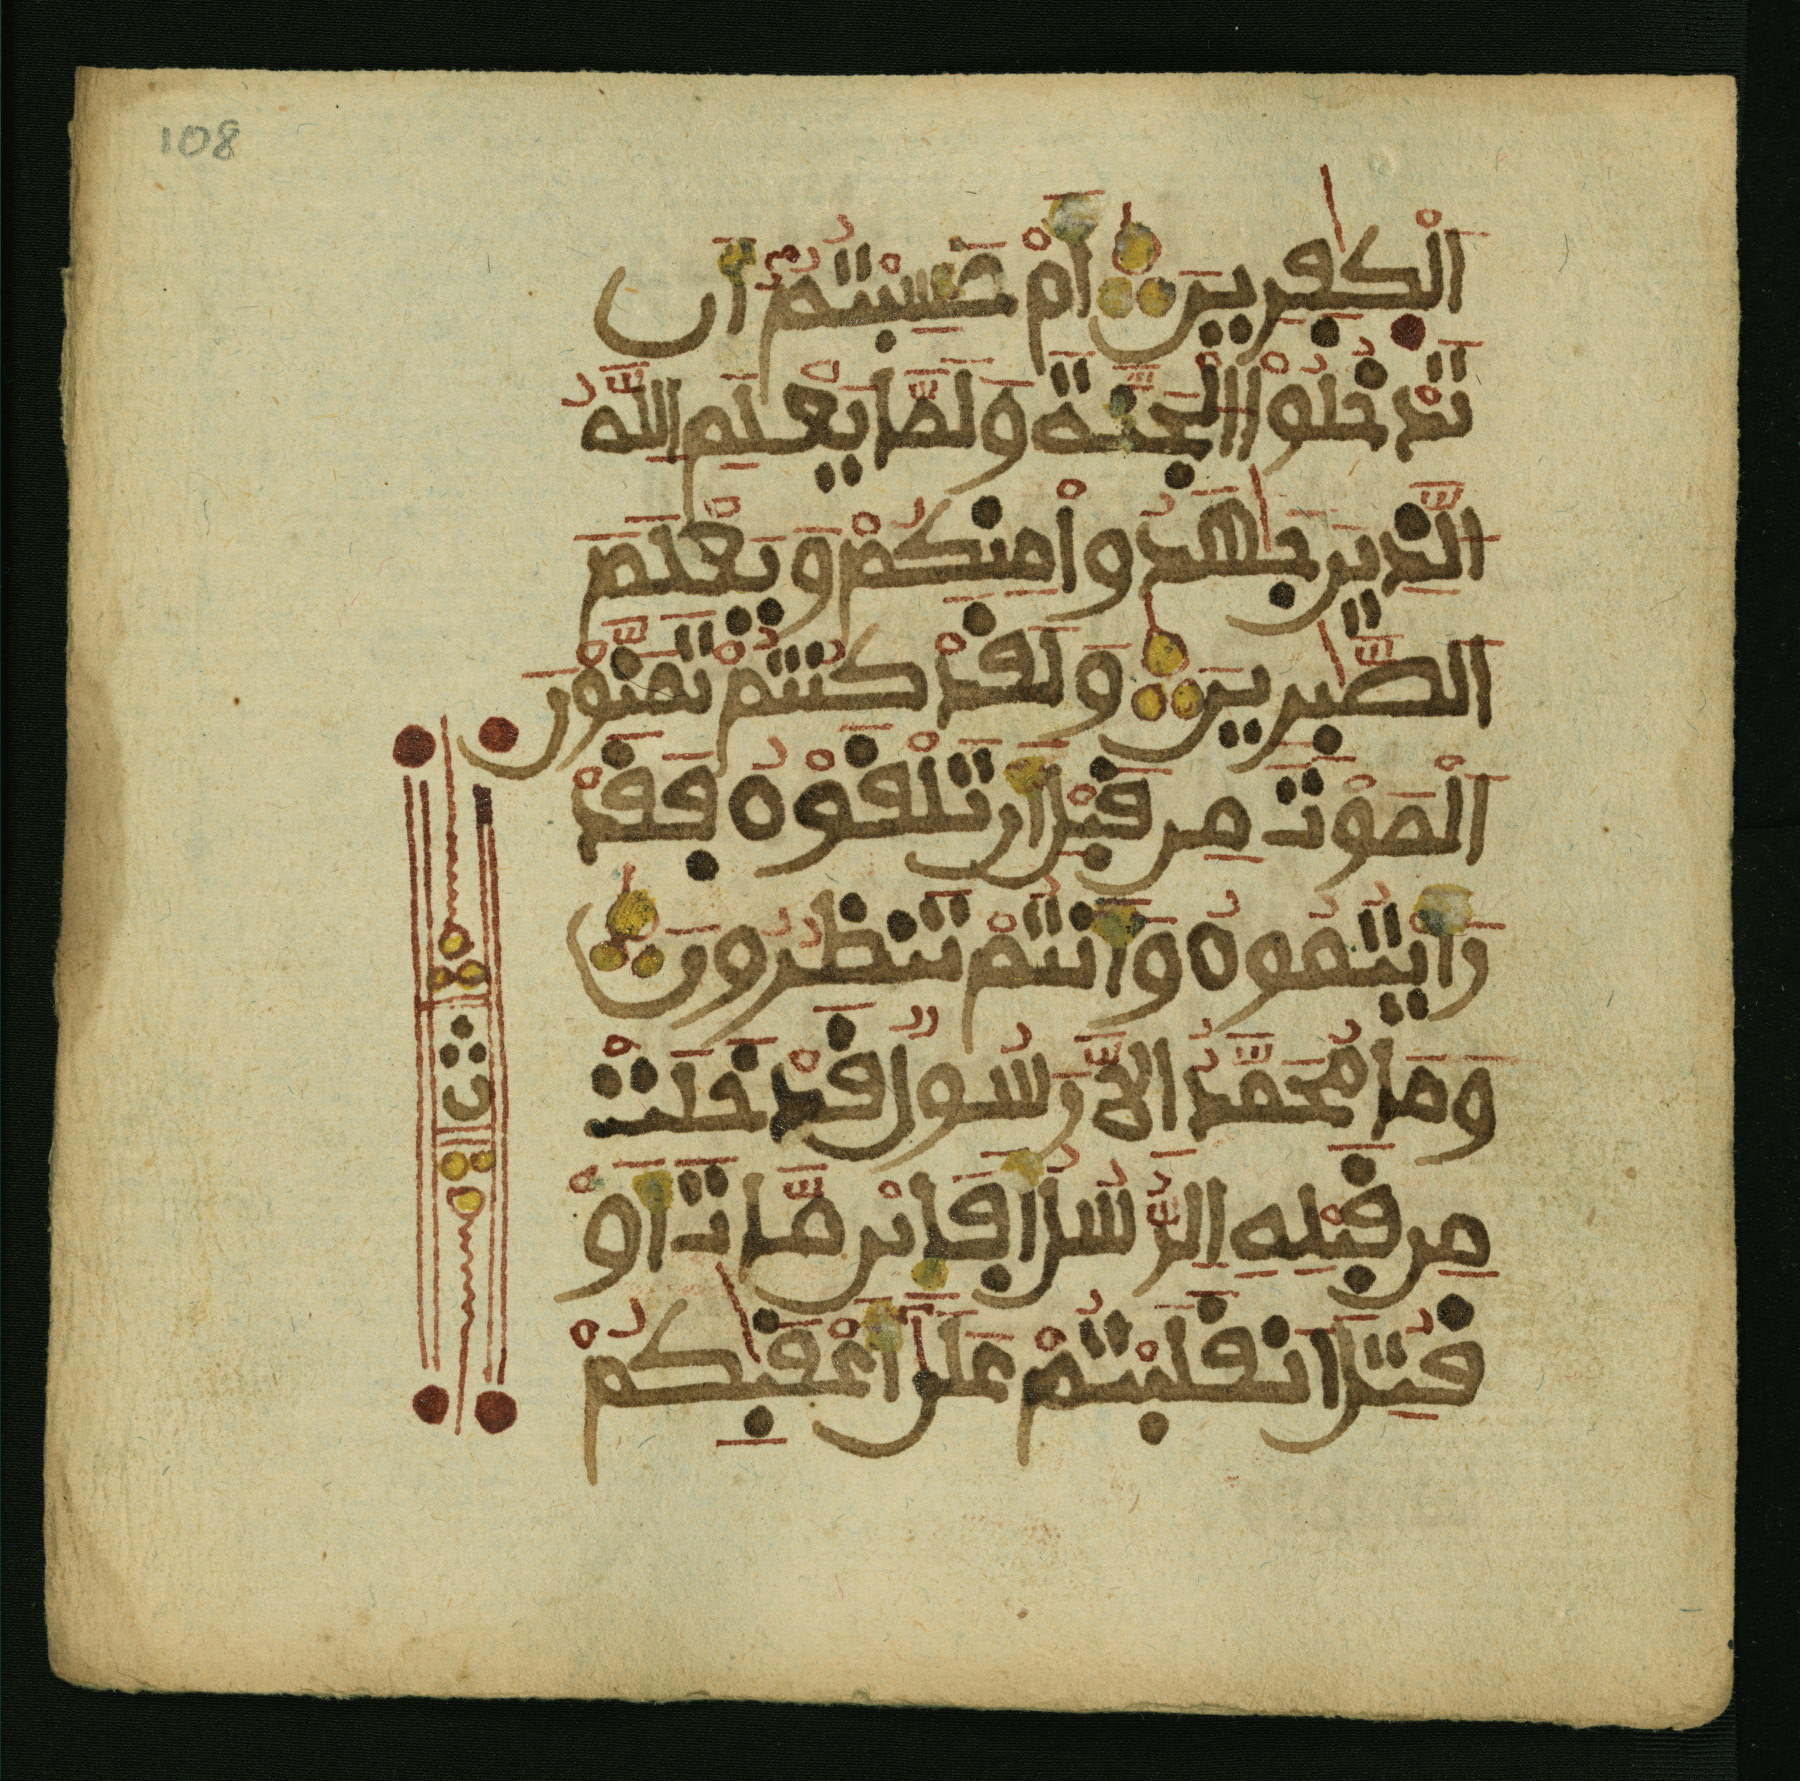 108
الْكٰفِرِينَ أَمْ حَسِبْتُمُۥ أَن
تَدْخُلُوا الْجَنَّةَ وَلَمَّا يَعْلَمِ اللَّهُ
الَّذِينَ جَٰهَدُوا مِنكُمْ وَيَعْلَمَ
الصَّٰبِرِينَ وَلَقَدْ كُنتُمْ تَمَنَّوْنَ
الْمَوْتَ مِن قَبْلِ أَن تَلْقَوْهُ فَقَدْ
رَأَيْتُمُوهُ وَأَنتُمْ تَنظُرُونَ
وَمَا مُحَمَّدٌ إِلَّا رَسُولٌ قَدْ خَلَتْ
مِن قَبْلِهِ الرُّسُلُ أَفَإِنْ مَّاتَ أَوْ
قُتِلَ انقَلَبْتُمْ عَلَىٰ أَعْقَٰبِكُمْ
ث